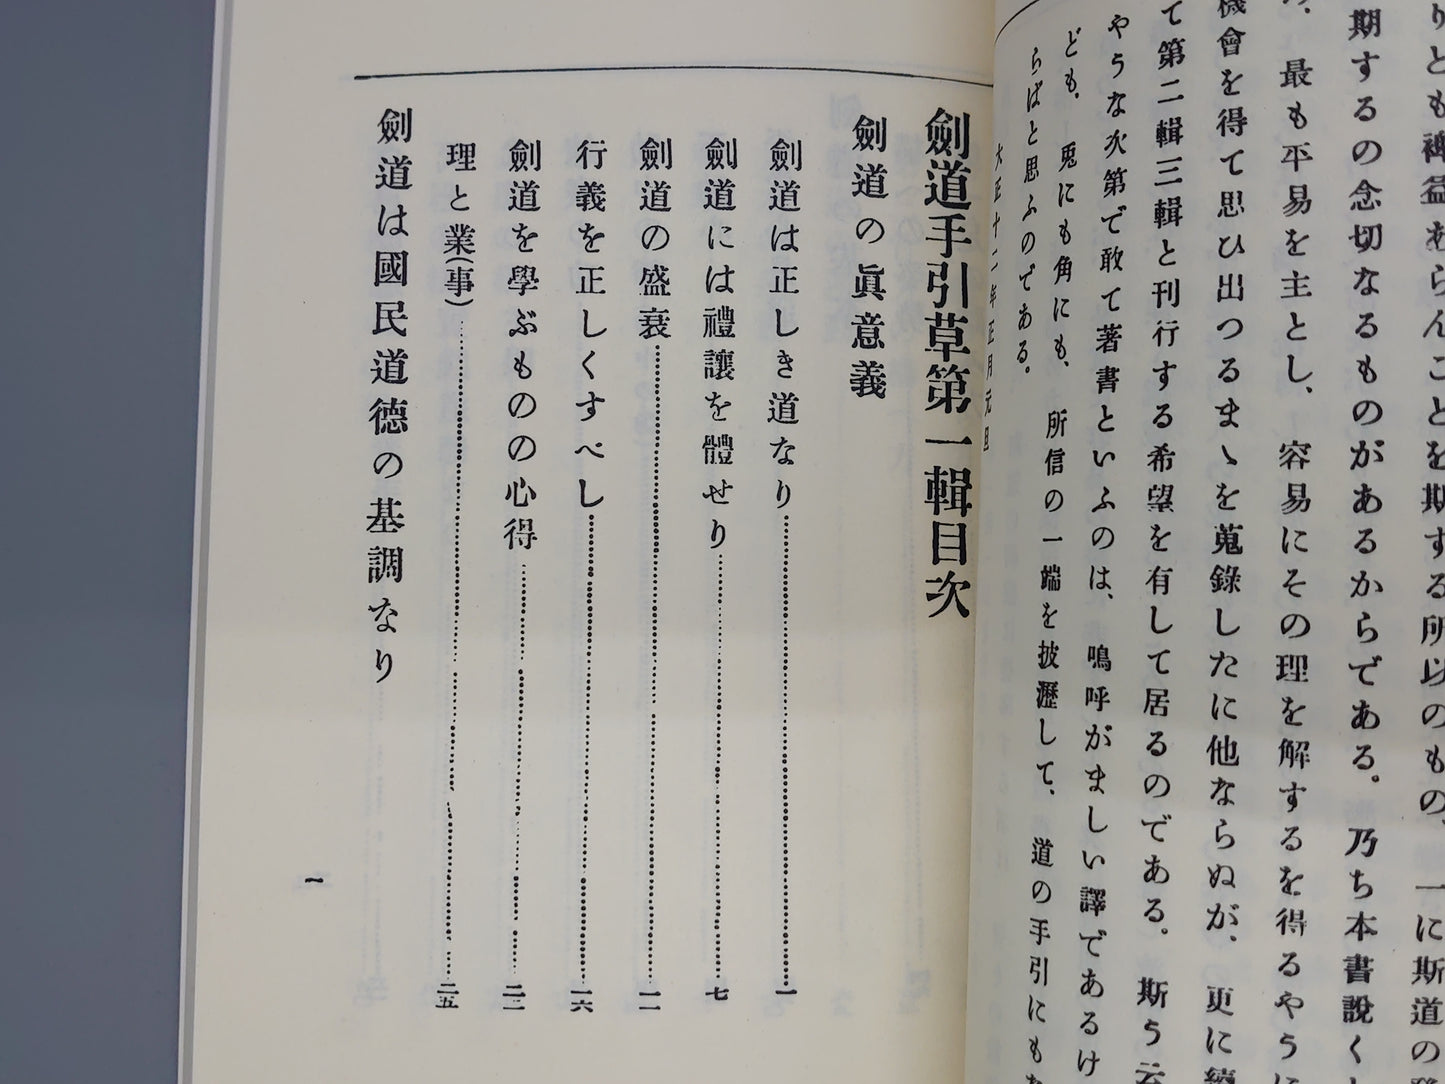 りとも裨益あらんことを期する所以のもの、一に斯道の
期するの念切なるものがあるからである。乃ち本書説く
、最も平易を主とし、容易にその理を解するを得るやうに
機會を得て思ひ出つるまゝを蒐錄したに他ならぬが、更に續
て第二輯三輯と刊行する希望を有して居るのである。斯う云
やうな次第で敢て著書といふのは、嗚呼がましい譯であるけ
ども、兎にも角にも、所信の一端を披瀝して、道の手引にもな
らばと思ふのである。
大正十二年正月元旦
劍道手引草第一輯目次
劍道の眞意義
劍道は正しき道なり……一
劍道には禮讓を體せり……七
劍道の盛衰……一一
行義を正しくすべし……一六
劍道を學ぶものの心得……二二
理と業(事)……二五
劍道は國民道德の基調なり
一